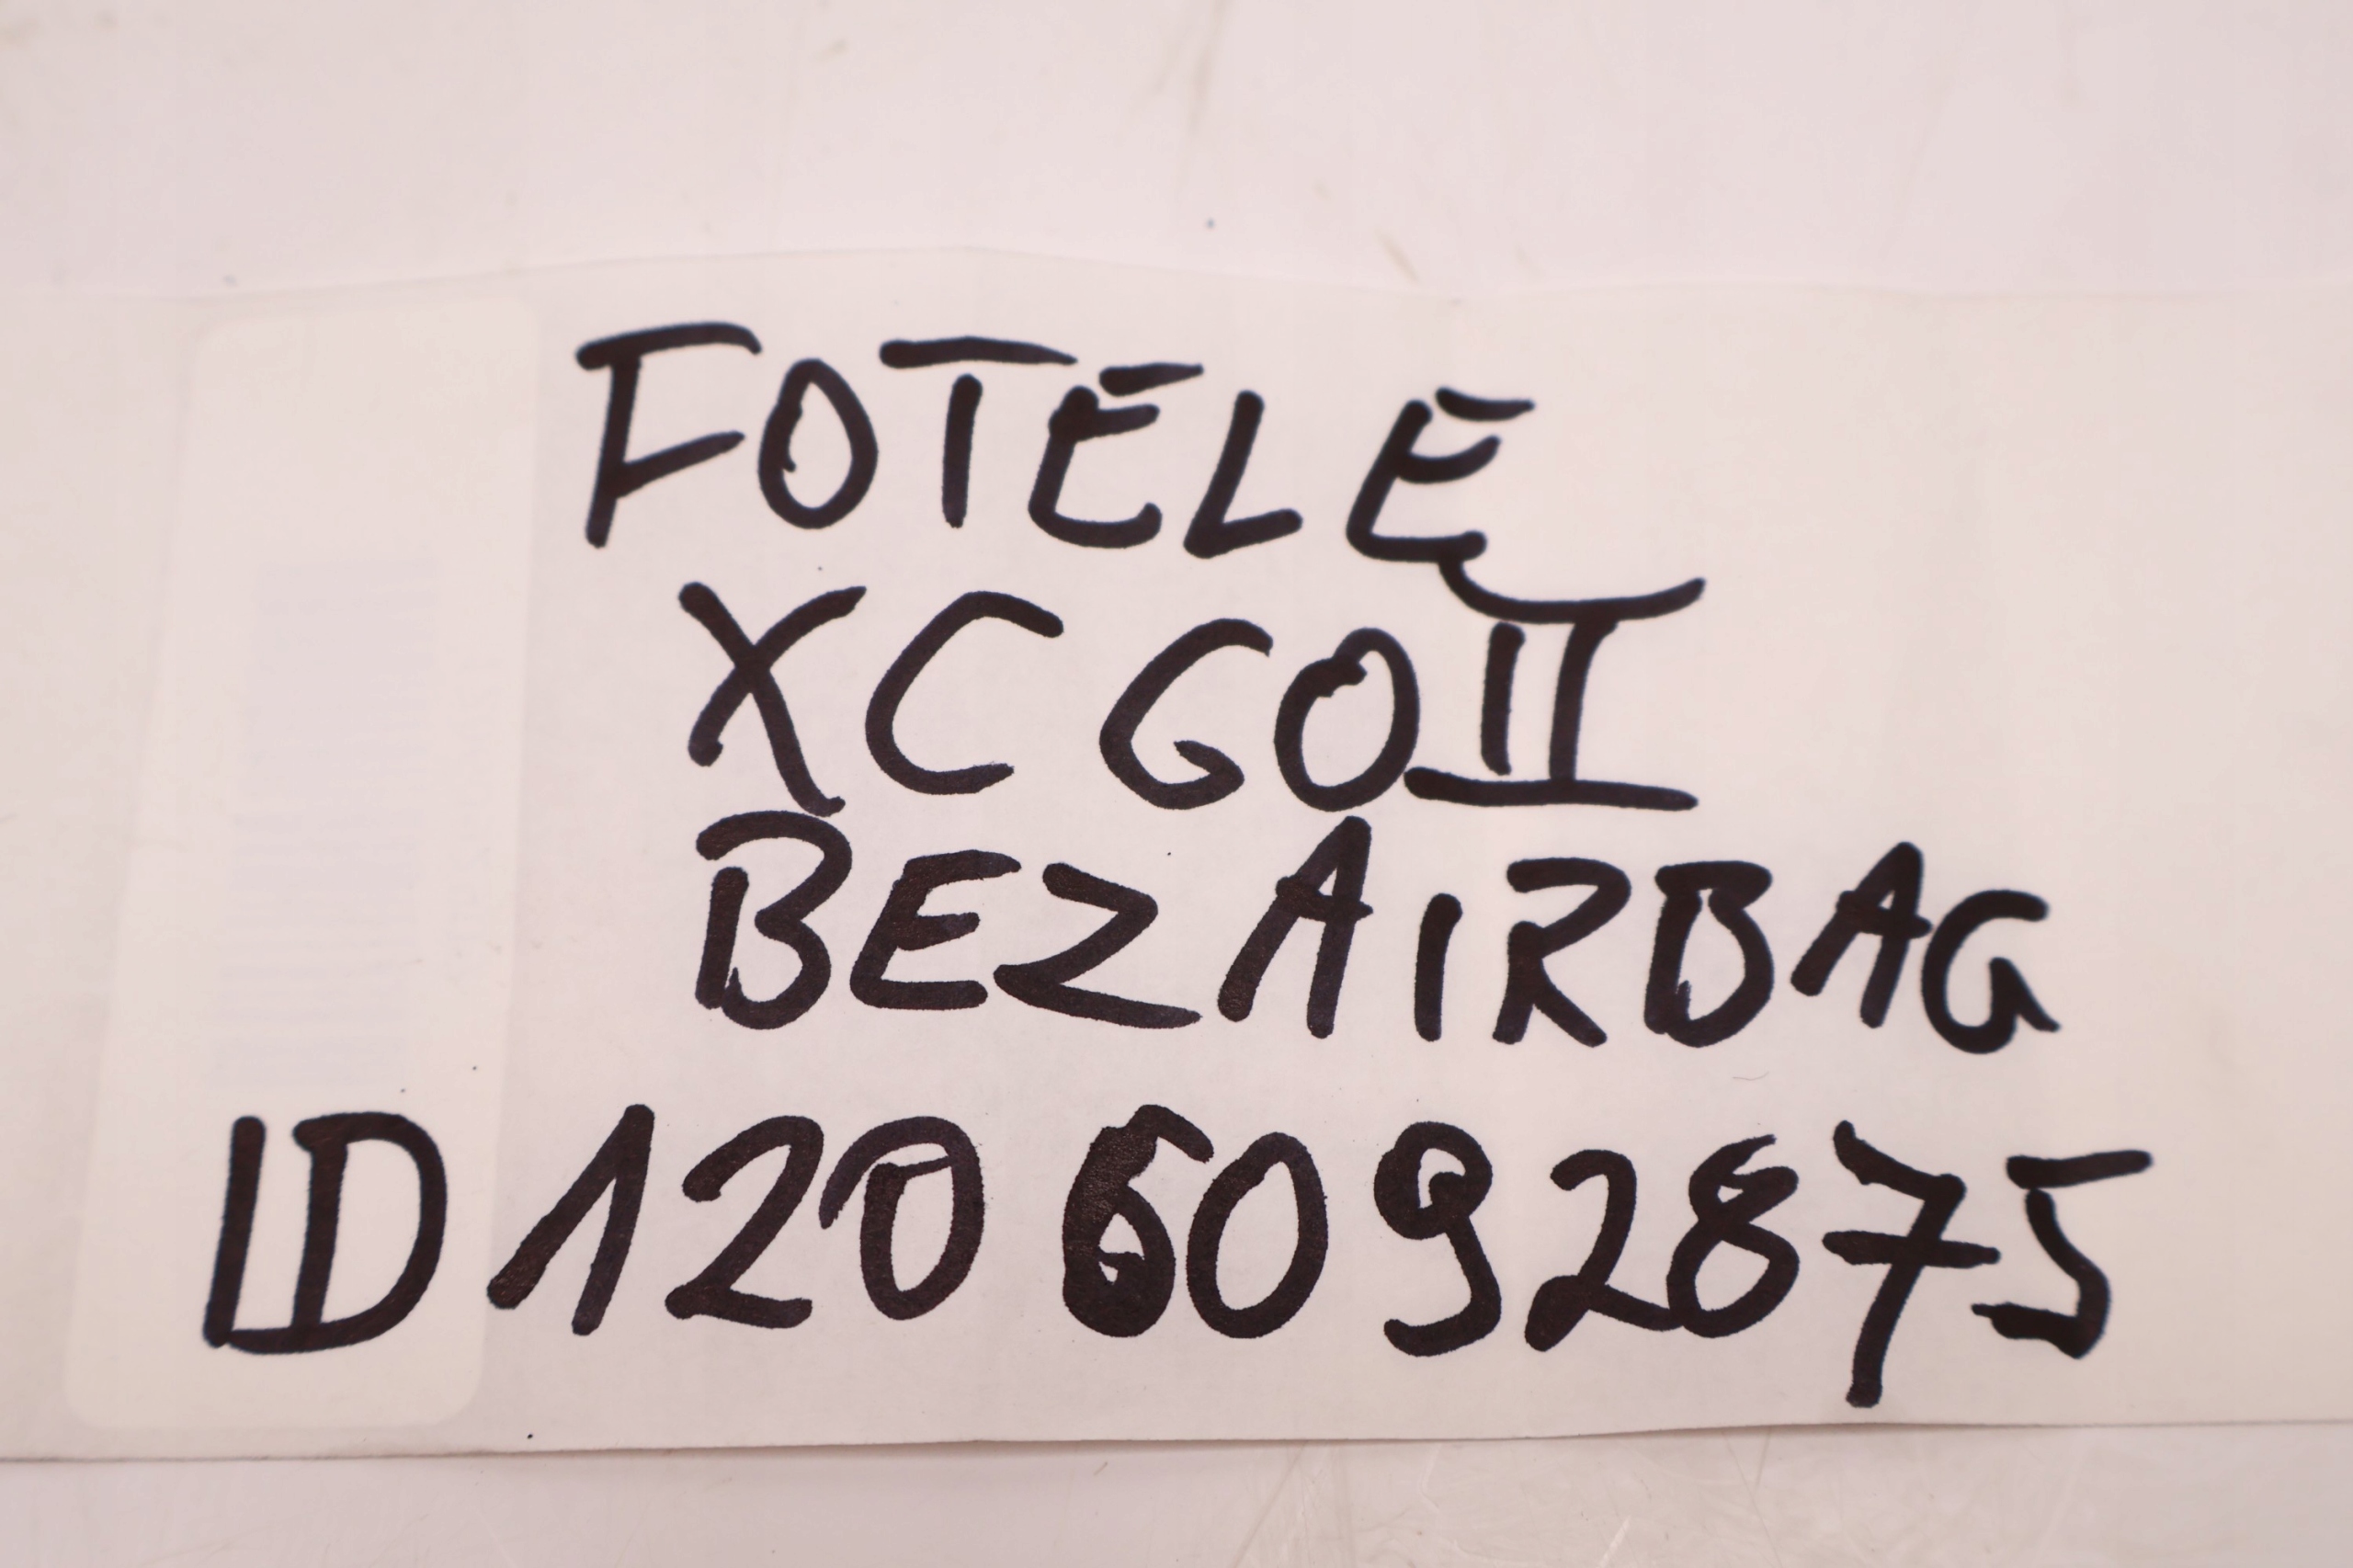 FOTELE
XC 60 II
BEZ AIRBAG
ID 120 6092875